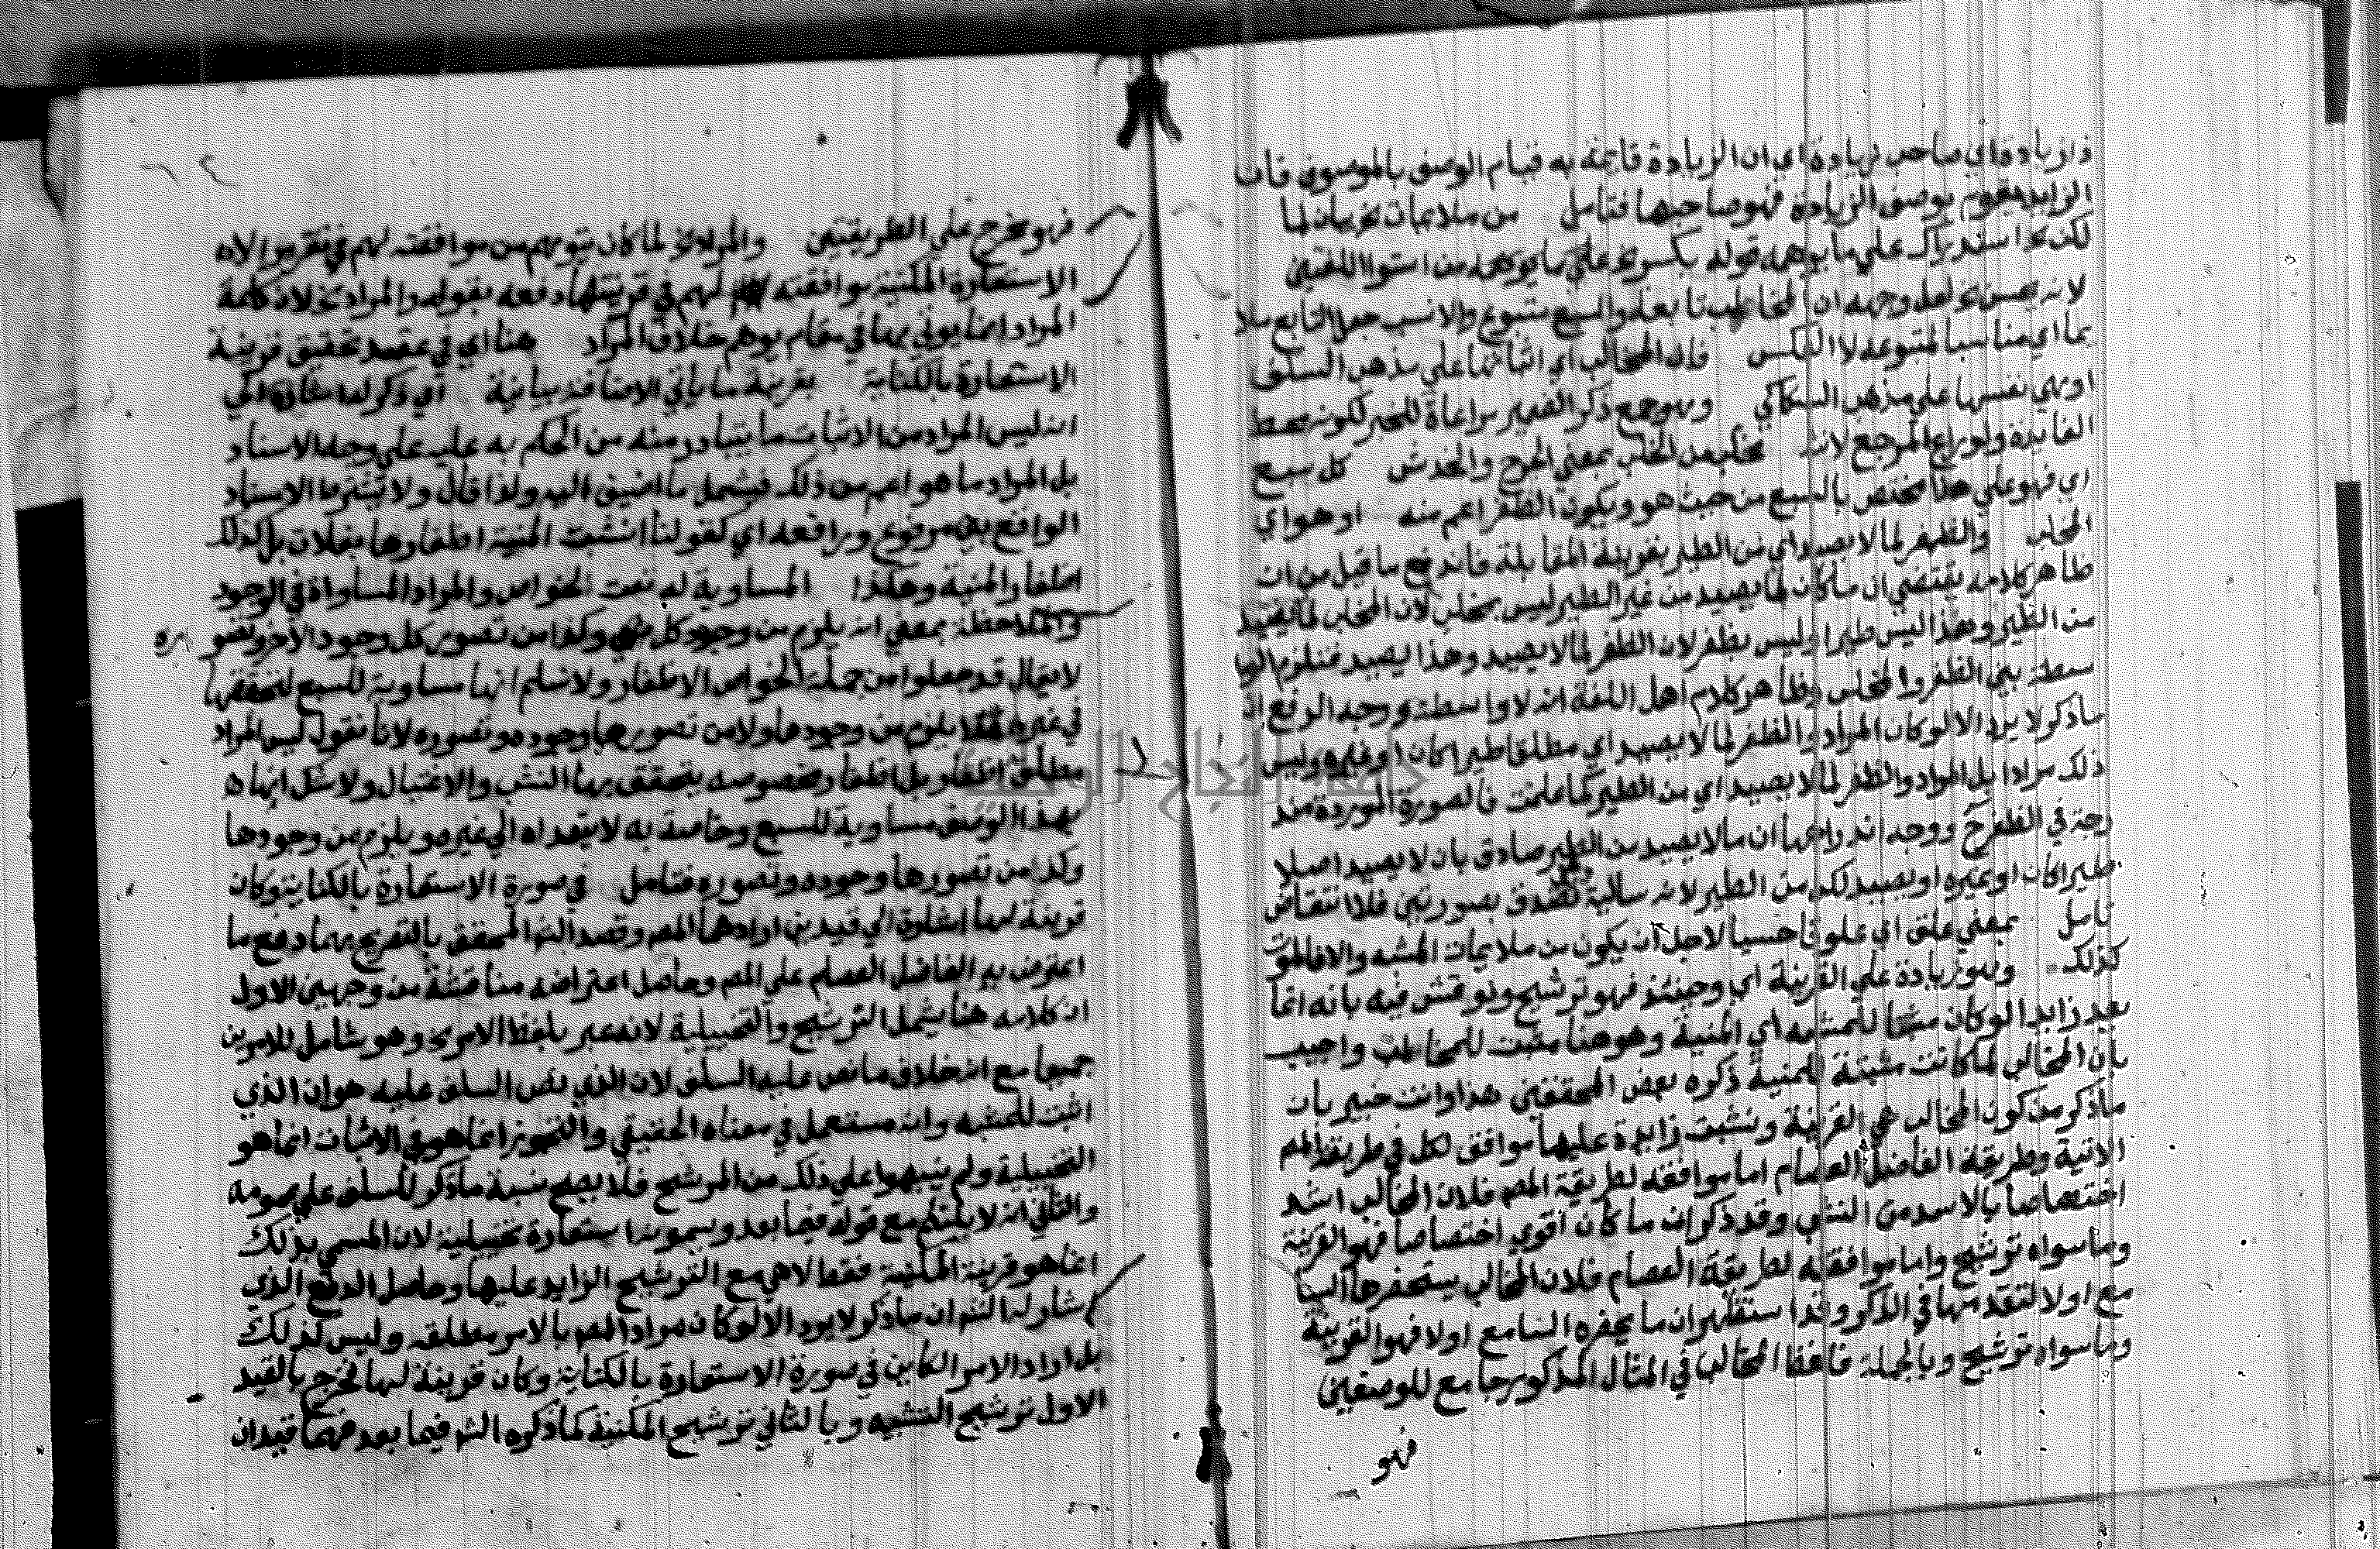 ذا زيادة اي صاحب زيادة اي ان الزيادة قائمة به قيام الوصف بالموصوف فان
الزايد يقوم بوصف الزيادة فهو صاحبها فتامل من ملايمات بخ بيان لما
لكن بخ استدراك علي ما يوهمه قوله من استوا اللغتين
لانه يحسن بخ لعل وجهه ان المخاطب تابع والسبع متبوع والانسب جعل التابع ملا
يما اي مناسبا لمتبوعه لا العكس فان المخالب اي اثباتها علي مذهب السلف
او هي نفسها علي مذهب السكاكي وهو جمع ذكر الضمير مراعاة للخبر لكونه محط
الفايدة ولم يراع المرجع لانه مخلب من الخلب بمعني الجرح والخدش كل سبع
اي فهو علي هذا مختص بالسبع من حيث هو ويكون الظفر اعم منه او هو اي
المخلب والظفر لما لا يصيد اي من الطير بقرينة المقابلة فاندفع ما قيل من ان
ظاهر كلامه يقتضي ان ما كان لما يصيد من غير الطير ليس بمخلب لان المخلب لما يصيد
من الطير وهذا ليس طيرا وليس بظفر لان الظفر لما لا يصيد وهذا يصيد فتلزم الوا
سطة بين الظفر والمخلب وظاهر كلام اهل اللغة انه لا واسطة ووجه الدفع ان
ما ذكر لا يرد الا لو كان المراد والظفر لما لا يصيد اي مطلقا طيرا كان او غيره وليس
ذلك مرادا بل المراد والظفر لما لا يصيد اي من الطير كما علمت فالصورة الموردة مند
رجة في الظفر ح ووجه اندراجها ان ما لا يصيد من الطير صادق بان لا يصيد اصلا
طيرا كان او غيره او يصيد لكن من الطير لانه سالبة تصدق بصورتين فلا انتقاض
تامل بمعني علق اي علوقا حسيا لاجل ان يكون من ملايمات المشبه والا فالمو
كذلك وهو زيادة علي القرينة اي وحينئذ فهو ترشيح ونوقش فيه بانه انما
يعد زايدا لو كان مثبتا للمشبه اي المنية وهو هنا مثبت للمخالب واجيب
بان المخالب لما كانت مثبتة للمنية ذكره بعض المحققين هذا وانت خبير بان
ما ذكر من كون المخالب هي القرينة ونشبت زايدة عليها موافق لكل من طريقة المص
الاتية وطريقة الفاضل العصام اما موافقة لطريقة المص فلان المخالب اشد
اختصاصا بالاسد من النشب وقد ذكر ان ما كان اقوي اختصاصا فهو القرينة
وما سواه ترشيح واما موافقته لطريقة العصام فلان المخالب يستحضرها السا
مع اولا لتقدمها في الذكر وقد استظهر ان ما يحضره السامع اولا فهو القرينة
وما سواه ترشيح وبالجملة فلفظ المخالب في المثال المذكور جامع للوصفين
فهو
فهو مخرج علي الطريقتين والمراد بخ لما كان يتوهم من موافقته لهم في تقرير الا
الاستعارة المكنية موافقته لهم في قرينتها دفعه بقوله والمراد بخ لان كلمة
المراد انما يوتي بها في مقام يوهم خلاف المراد هنا اي في مقصد تحقيق قرينة
الاستعارة بالكناية بقرينة ما ياتي الاضافة بيانية اي ذكر له اشارة الي
انه ليس المراد من الاثبات ما يتبادر منه من الحكم به عليه علي وجه الاسناد
بل المراد ما هو اعم من ذلك فيشمل ما اضيف اليه ولذا قال ولا يشترط الاسناد
الواقع بين مرفوع ورافعه اي كقولنا انشبت المنية اظفارها بفلان بل كذلك
اظفار المنية وهكذا المساوية له نعت الخواص والمراد المساواة في الوجود
والملاحظة بمعني انه يلزم من وجود كل وكذا من تصور كل وجود الاخر وتصوره
لا يقال قد جعلوا من جملة الخواص الاظفار ولا نسلم انها مساوية للسبع لتحققها
في غيره فلا يلزم من وجودها ولا من تصورها وجوده وتصوره لانا نقول ليس المراد
مطلق اظفار بل اظفار مخصوصه يتحقق بها النشب والاغتيال ولا شك انها
بهذا الوصف مساوية للسبع وخاصة به لا يتعداه الي غيره ويلزم من وجودها
وكذا من تصورها وجوده وتصوره فتامل في صورة الاستعارة بالكناية وكان
قرينة لها اشارة الي قيدين ارادهما المص وقصد الش المحقق بالتصريح بهما دفع ما
اعترض به الفاضل العصام علي المص وحاصل اعتراضه مناقشة من وجهين الاول
ان كلامه هنا يشمل الترشيح والتخييلية لانه عبر بلفظ الامر بخ وهو شامل للامرين
جميعا مع انه خلاف ما نص عليه السلف لان الذي نص السلف عليه هو ان الذي
اثبت للمشبه وانه مستعمل في معناه الحقيقي والتجوز انما هو في الاثبات انما هو
التخييلية ولم ينبهوا علي ذلك من الترشيح فلا يصح نسبة ما ذكر للسلف علي عمومه
والثاني انه لا يلتئم مع قوله فيما بعد ويسمونه استعارة تخييلية لان المسمي بذلك
انما هو قرينة المكنية فقط لا هي مع الترشيح الزايد عليها وحاصل الدفع الذي
اشار له الش ان ما ذكر لا يرد الا لو كان مراد المص بالامر مطلقه وليس كذلك
بل اراد الامر الكاين في صورة الاستعارة بالكناية وكان قرينة لها فخرج بالقيد
الاول ترشيح التشبيه وبالثاني ترشيح المكنية كما ذكره الش فيما بعد فهما قيدان
جامعة النجاح الوطنية